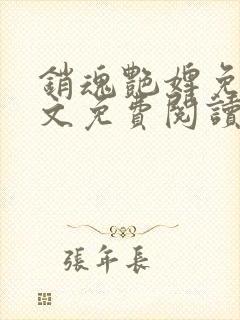 銷魂艷婢免
文免費閱讀
張年長